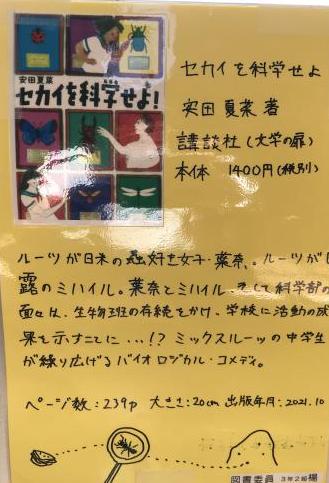 安田夏菜
セカイを科学せよ!
セカイを科学せよ
安田 夏菜 著
講談社(文学の扉)
本体 1400円(税別)
ルーツが日米の蟲好き女子・葉奈、ルーツが
露のミハイル。葉奈とミハイル、そして科学部の
面々は、生物班の存続をかけ、学校に活動の成
果を示すことに...!? ミックスルーツの中学生
が繰り広げるバイオロジカル・コメディ。
ページ数:239p 大きさ:20cm 出版年月:2021.10
図書委員 3年2組 楊